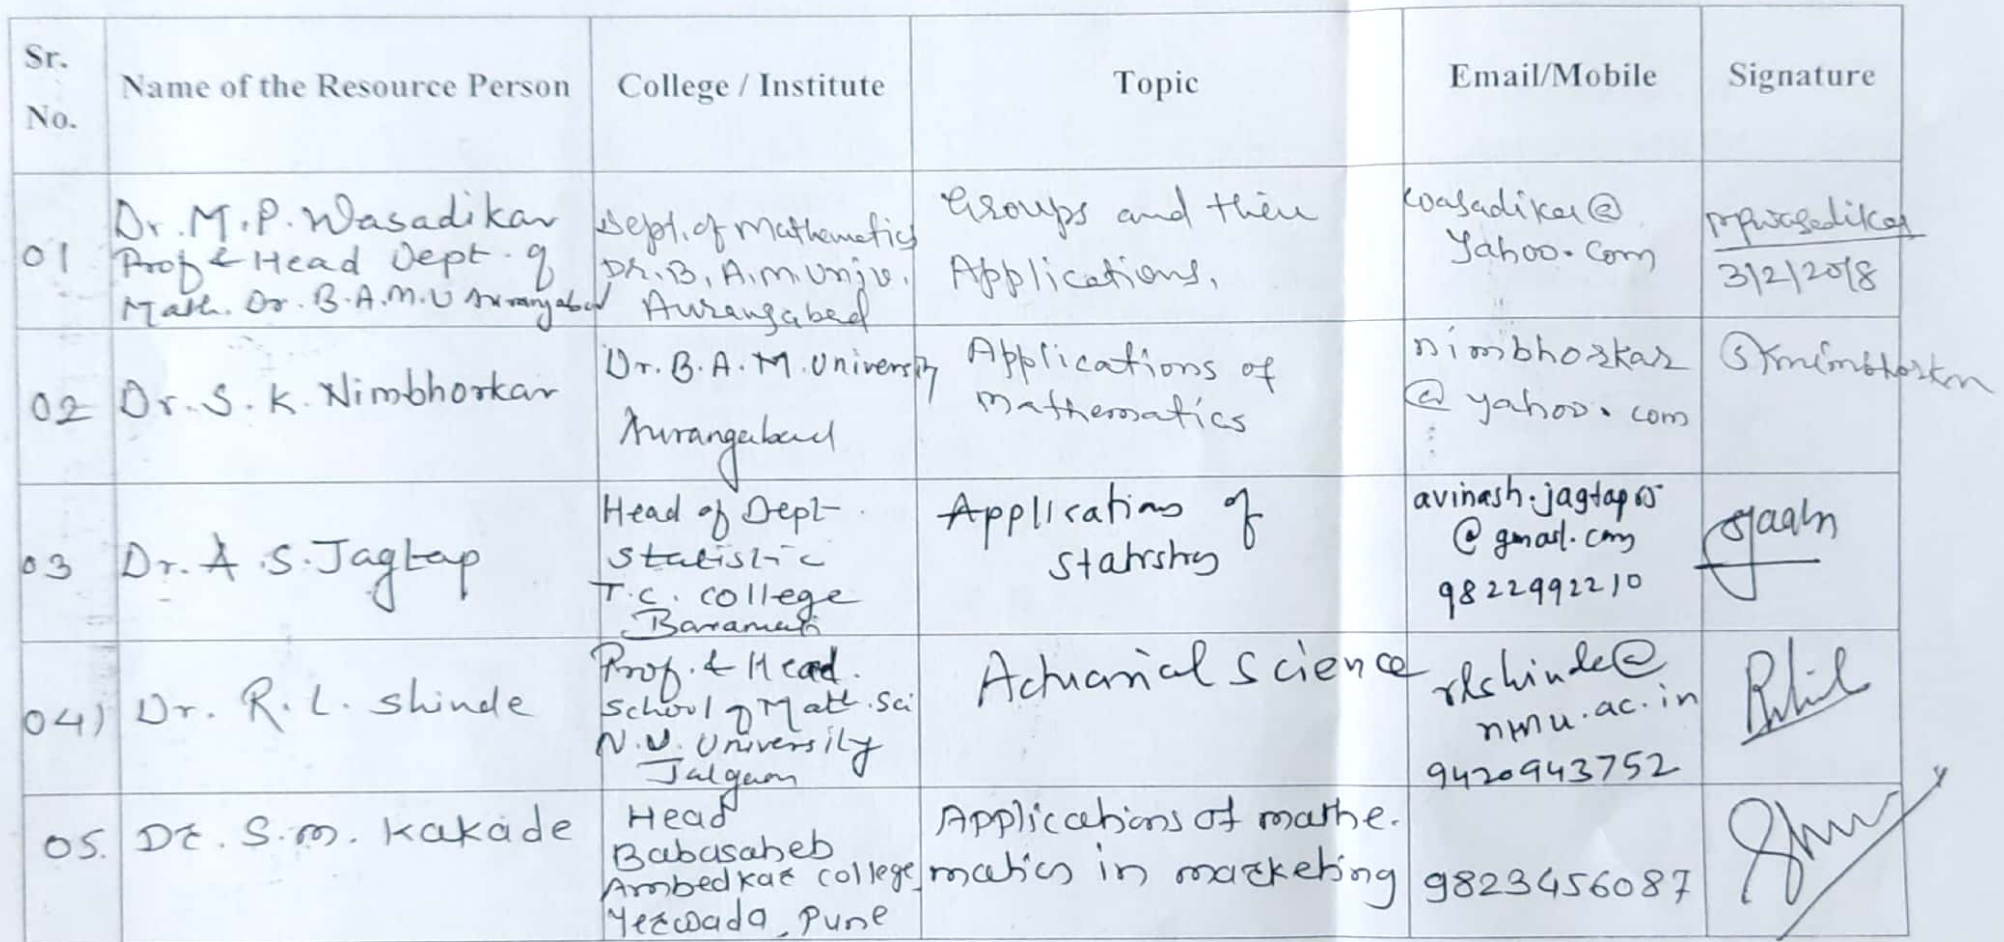 Sr. No.
Name of the Resource Person
College / Institute
Topic
Email/Mobile
Signature
01
Dr. M. P. Wasadikar
Prof & Head Dept. of
Math. Dr. B.A.M.U Aurangabad
Dept. of Mathematics
Dr. B. A. M. Univ.
Aurangabad
Groups and their
Applications.
wasadikar@
Yahoo.com
mpwasadikar
3/2/2018
02
Dr. S. K. Nimbhorkar
Dr. B. A. M. University
Aurangabad
Applications of
mathematics
nimbhorkar
@ yahoo.com
Sknimbhorkar
03
Dr. A. S. Jagtap
Head of Dept
Statistic
T.C. college
Baramati
Applications of
Statistics
avinash.jagtap05
@gmail.com
9822992210
04)
Dr. R. L. Shinde
Prof. & Head.
School of Math. Sci
N.M. University
Jalgaon
Actuarial Science
rlshinde@
nmu.ac.in
9420943752
05.
Dr. S. m. Kakade
Head
Babasaheb
Ambedkar college,
Yerwada, Pune
Applications of mathe.
matics in marketing
9823456087